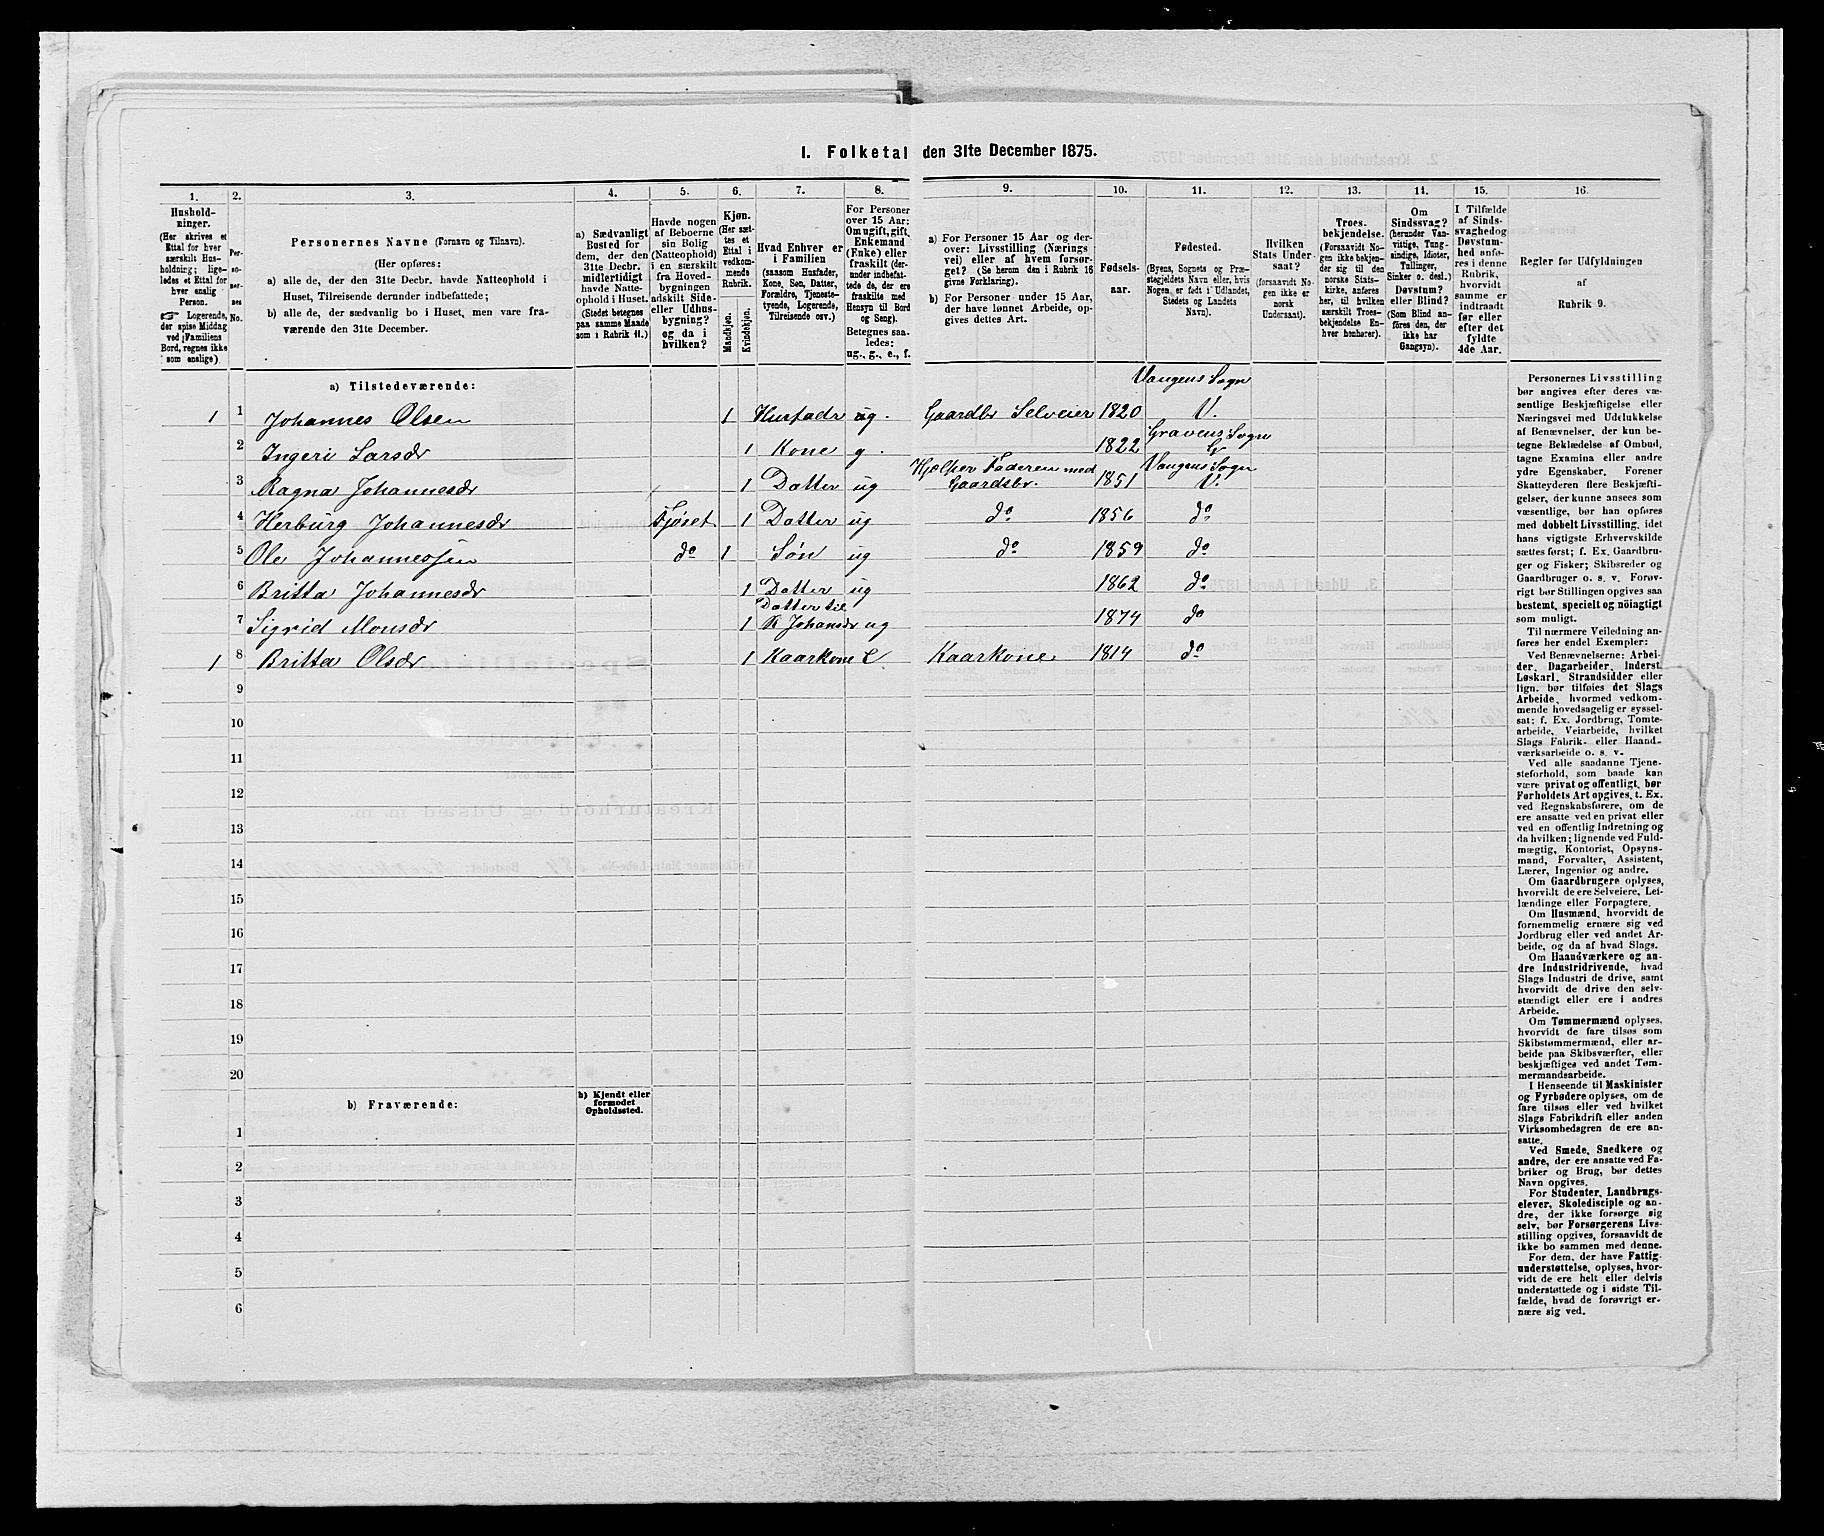 1. Folketal den 31te December 1875.
1.
2.
3.
4.
5.
6.
7.
8.
9.
10.
11.
12.
13.
14.
15.
16.
Hushold-
ninger.
(Her skrives et
Ettal for hver
særskilt Hus-
holdning; lige-
ledes et Ettal for
hver enslig
Person.
☞ Logerende,
der spise Middag
ved Familiens
Bord, regnes ikke
som enslige).
Per-
so-
ner-
nes
No.
Personernes Navne (Fornavn og Tilnavn).
(Her opføres:
a) alle de, der den 31te Decbr. havde Natteophold i
Huset, Tilreisende derunder indbefattede;
b) alle de, der sædvanlig bo i Huset, men vare fra-
værende den 31te December.
a) Sædvanligt
Bosted for
dem, der den
31te Decbr.
midlertidigt
havde Natte-
ophold i Huset.
(Stedet betegnes
paa samme Maade
som i Rubrik 11.)
Havde nogen
af Beboerne
sin Bolig
(Natteophold)
i en særskilt
fra Hoved-
bygningen
adskilt Side-
eller Udhus-
bygning?
og da i
hvilken?
Kjøn.
(Her sæt-
tes et
Ettal i
vedkom-
mende
Rubrik.
Mandkjøn.
Kvindekjøn.
Hvad Enhver er
i Familien
(saasom Husfader,
Kone, Søn, Datter,
Forældre, Tjeneste-
tyende, Logerende,
Tilreisende osv.)
For Personer
over 15 Aar:
Om ugift, gift,
Enkemand
(Enke) eller
fraskilt (der-
under indbefat-
tede de, der ere
fraskilte med
Hensyn til Bord
og Seng).
Betegnes saa-
ledes:
ug., g., e., f.
a) For Personer 15 Aar og der-
over: Livsstilling (Nærings
vei) eller af hvem forsør-
get? (Se herom den i Rubrik 16
givne Forklaring).
b) For Personer under 15 Aar,
der have lønnet Arbeide, op-
gives dettes Art.
Fødsels-
aar.
Fødested.
(Byens, Sognets og Præ-
stegjeldets Navn eller, hvis
Nogen er født i Udlandet,
Stedets og Landets
Navn).
Hvilken
Stats Under-
saat?
(forsaavidt No-
gen ikke er
norsk
Undersaat).
Troes-
bekjendelse.
(Forsaavidt No-
gen ikke bekjen-
der sig til den
norske Stats-
kirke, anføres
her, til hvilken
særskilt Troes-
bekjendelse En-
hver henhører).
Om
Sindssvag?
(herunder Van-
vittige, Tung-
sindige, Idioter,
Tullinger,
Sinker o. desl.)
Døvstum?
eller Blind?
(Som Blind an-
føres den, der
ikke har
Gangsyn).
I Tilfælde
af Sinds-
svaghed og
Døvstum-
hed anfø-
res i denne
Rubrik,
hvorvidt
samme er
indtraadt
før eller
efter det
fyldte
4de Aar.
Regler for Udfyldningen
af
Rubrik 9.
a) Tilstedeværende:
Vangens Sogn
1 1 Johannes Olsen 1 Husfader ug. Gaardbr Selveier 1820 V.
Gravens Sogn
2 Ingeri Larsdr 1 Kone g. 1822 G
Hjælper Faderen med Vangens Sogn
3 Ragna Johannesdr 1 Datter ug Gaardsbr. 1851 V.
4 Herburg Johannesdr Fjöset 1 Datter ug do 1856 do
5 Ole Johannessen do 1 Søn ug do 1859 do
6 Britta Johannesdr 1 Datter ug 1862 do
Datter til
7 Sigrid Monsdr 1 R Johansdr ug 1874 do
1 8 Britta Olsdr 1 Kaarkone E Kaarkone 1814 do
9
10
11
12
13
14
15
16
17
18
19
20
b) Fraværende:
b) Kjendt eller
formodet
Opholdssted.
1
2
3
4
5
6
Personernes Livsstilling
bør angives efter deres væ-
sentlige Beskjæftigelse eller
Næringsvei med Udelukkelse
af Benævnelser, der kun be-
tegne Beklædelse af Ombud,
tagne Examina eller andre
ydre Egenskaber. Forener
Skatteyderen flere Beskjæfti-
gelser, der kunne ansees som
væsentlige, bør han opføres
med dobbelt Livsstilling, idet
hans vigtigste Erhvervskilde
sættes først; f. Ex. Gaardbru-
ger og Fisker; Skibsreder og
Gaardbruger o. s. v. Forøv-
rigt bør Stillingen opgives saa
bestemt, specielt og nöiagtigt
som muligt.
Til nærmere Veiledning an-
føres her endel Exempler:
Ved Benævnelserne: Arbei-
der, Dagarbeider, Inderst,
Løskarl, Strandsidder eller
lign. bør tilføies det Slags
Arbeide, hvormed vedkom-
mende hovedsagelig er syssel-
sat; f. Ex. Jordbrug, Tomte-
arbeide, Veiarbeide, hvilket
Slags Fabrik- eller Haand-
værksarbeide o. s. v.
Ved alle saadanne Tjene-
steforhold, som baade kan
være privat og offentligt, bør
Forholdets Art opgives, t. Ex.
ved Regnskabsførere, om de
ere ansatte ved en privat eller
ved en offentlig Indretning og
da hvilken; lignende ved Fuld-
mægtig, Kontorist, Opsyns-
mand, Forvalter, Assistent,
Lærer, Ingeniør og andre.
Om Gaardbrugere oplyses,
hvorvidt de ere Selveiere, Lei-
lændinge eller Forpagtere.
Om Husmænd, hvorvidt de
fornemmelig ernære sig ved
Jordbrug eller ved andet Ar-
beide, og da af hvad Slags.
Om Haandværkere og an-
dre Industridrivende, hvad
Slags Industri de drive, samt
hvorvidt de drive den selv-
stændigt eller ere i andres
Arbeide.
Om Tømmermænd oplyses,
hvorvidt de fare tilsøs som
Skibstømmermænd, eller ar-
beide paa Skibsværfter, eller
beskjæftiges ved andet Tøm-
mermandsarbeide.
I Henseende til Maskinister
og Fyrbødere oplyses, om de
fare tilsøs eller ved hvilket
Slags Fabrikdrift eller anden
Virksomhedsgren de ere an-
satte.
Ved Smede, Snedkere og
andre, der ere ansatte ved Fa-
briker og Brug, bør dettes
Navn opgives.
For Studenter, Landbrugs-
elever, Skoledisciple og an-
dre, der ikke forsørge sig
selv, bør Forsørgerens Livs-
stilling opgives, forsaavidt de
ikke bo sammen med denne.
For dem, der have Fattig-
understøttelse, oplyses, hvor-
vidt de ere helt eller delvis
understøttede og i sidste Til-
fælde, hvad de forøvrigt er-
nære sig ved.